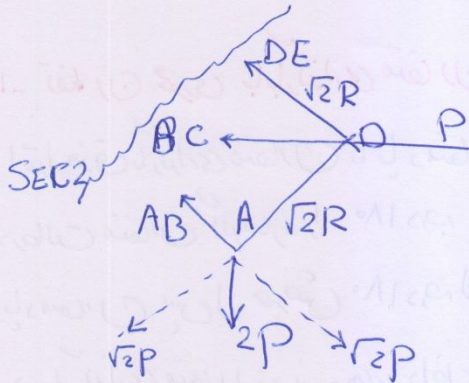 DE
√2R
BC
D
P
SEC2
AB
A
√2R
2P
√2P
√2P